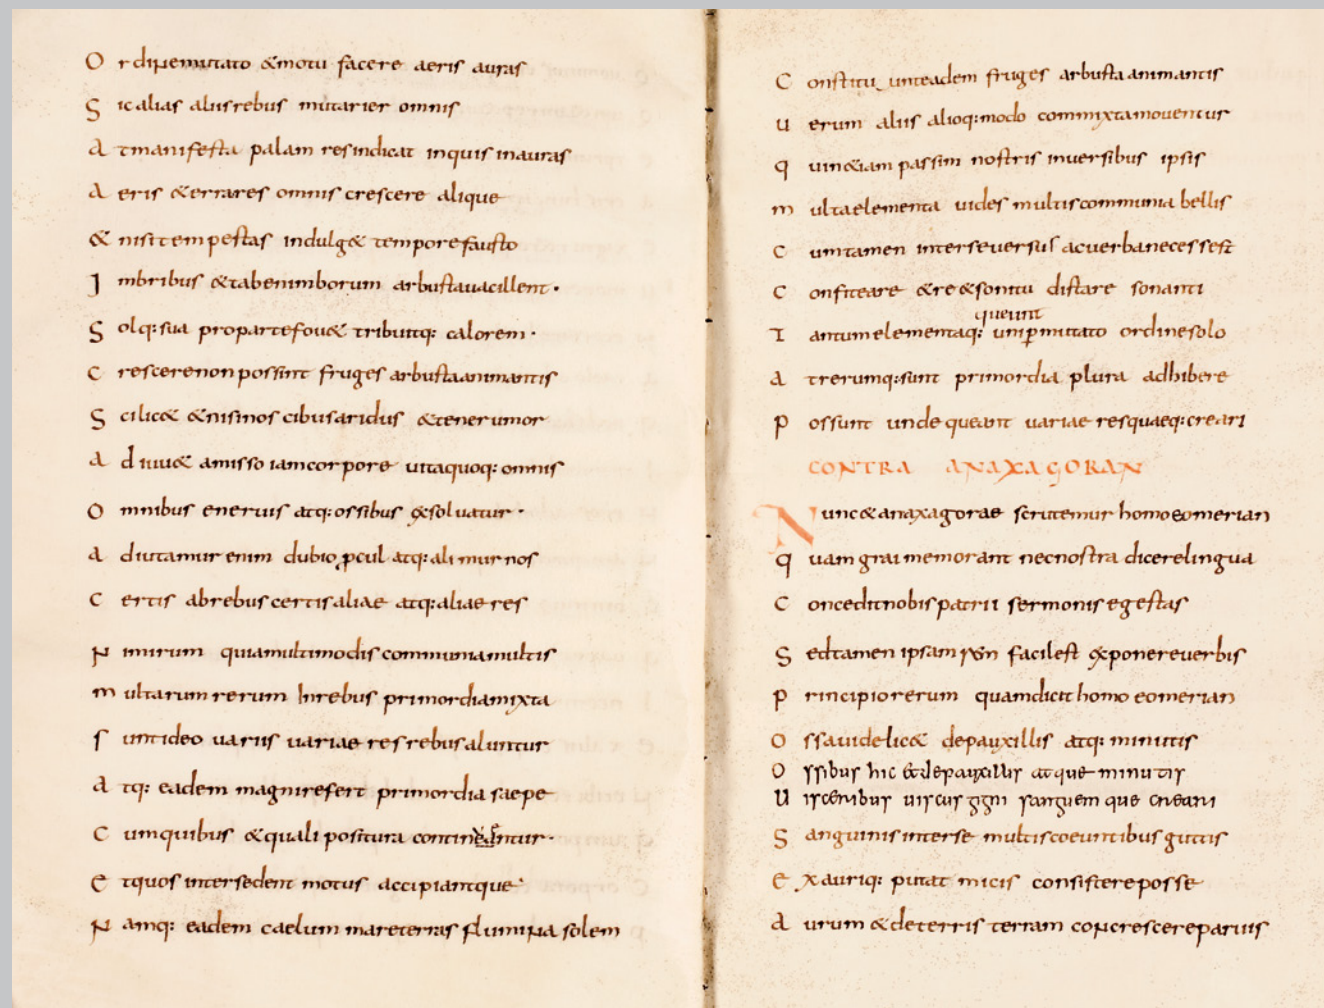 O rdine mutato & motu facere aeris auras
S ic alias aliis rebus mutarier omnis
A t manifesta palam res indicat inquis in auras
A eris & e terra res omnis crescere alique
& nisi tempestas indulg& tempore fausto
I mbribus & tabe nimborum arbusta vacillent·
S olq: sua pro parte fou& tribuitq: calorem·
C rescere non possint fruges arbusta animantis
S cilic& & nisi nos cibus aridus & tener umor
A diuu& amisso iam corpore uita quoq: omnis
O mnibus e neruis atq: ossibus exsoluatur·
A diutamur enim dubio procul atq: alimur nos
C ertis ab rebus certis aliae atq: aliae res
N imirum quia multimodis communia multis
M ultarum rerum in rebus primordia mixta
S unt ideo uariis uariae res rebus aluntur
A tq: eadem magni refert primordia saepe
C um quibus & quali positura contineantur·
E t quos inter se dent motus accipiantque
N amq: eadem caelum mare terras flumina solem
C onstituunt eadem fruges arbusta animantis
U erum aliis alioq: modo commixta mouentur
Q uin &iam passim nostris in uersibus ipsis
M ulta elementa uides multis communia bellis
C um tamen inter se uersus ac uerba necessest
C onfiteare & re & sonitu distare sonanti
queunt
T antum elementaq: uni permutato ordine solo
A t rerum q: sunt primordia plura adhibere
P ossunt unde queant uariae res quaeq: creari
CONTRA ANAXAGORAN
N unc & anaxagorae scrutemur homoeomerian
Q uam grai memorant nec nostra dicere lingua
C oncedit nobis patrii sermonis egestas
S ed tamen ipsam rem facilest exponere uerbis
P rincipio rerum quam dicit homoeomerian
O ssa uidelic& de pauxillis atq: minutis
O ssibus hic & de pauxillis atque minutis
U isceribus uiscus gigni sanguemque creari
S anguinis inter se multis coeuntibus guttis
E x auriq: putat micis consistere posse
A urum & de terris terram concrescere paruis